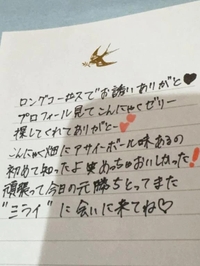 ロングコースでお誘いありがと♥
プロフィール見てこんにゃくゼリー
探してくれてありがとー💕
こんにゃく畑にアサイーボール味あるの
初めて知ったよ笑めっちゃおいしかった❗
頑張って今日の元勝ちとってまた
"ミライ"に会いに来てね♡